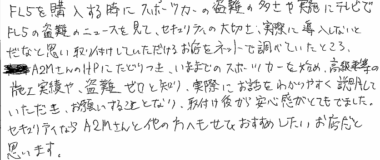 FL5を購入する時にスポーツカーの盗難の多さや実際にテレビで
FL5の盗難のニュースを見て、セキュリティの大切さ、実際に導入しないと
だなと思い取り付けしていただけるお店をネットで調べていたところ、
A2MさんのHPにたどりつき、いままでのスポーツカーを始め、高級車等の
施工実績や、盗難ゼロと知り、実際にお話をわかりやすく説明して
いただき、お願いすることとなり、取付け後が安心感がとてもでました。
セキュリティならA2Mさんと他の方へもぜひおすすめしたいお店だと
思います。